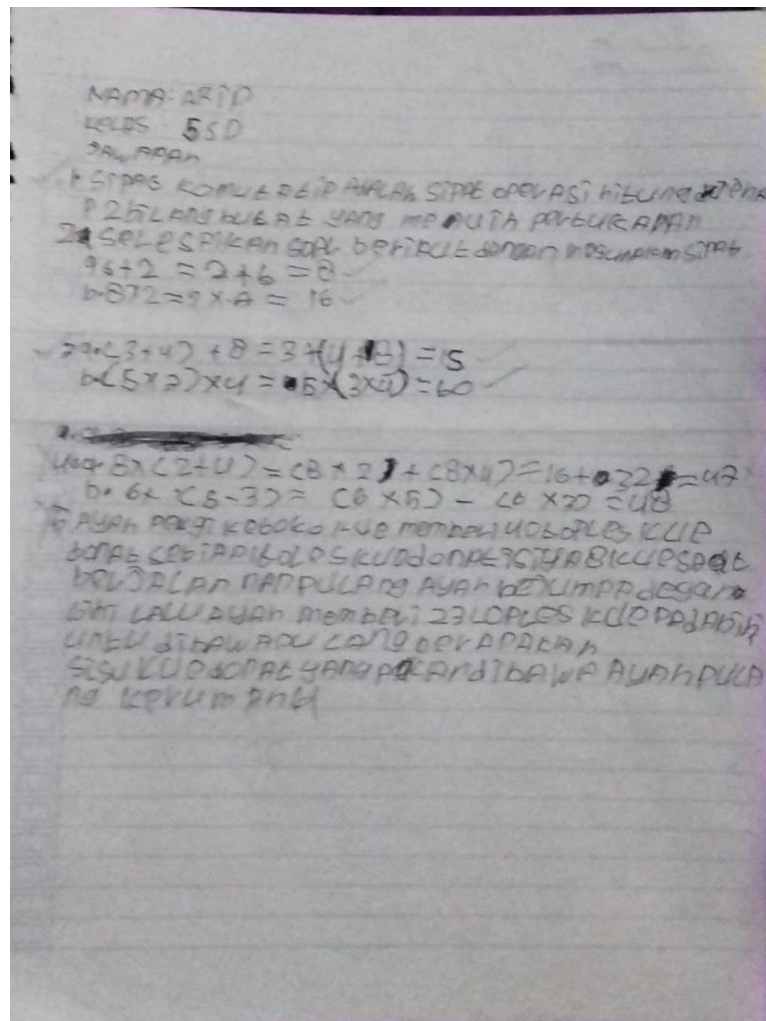 NAMA: ARIP
KELAS : 5 SD
JAWABAN
1 SIPAT KOMUTATIP ADALAH SIPAT OPERASI HITUNG
P 2 BILANG BULAT YANG MEMUIH PERTUKARAN
2 SELESAIKAN SOAL BERIKUT DENGAN SIPAT
9 6+2 = 2+6 = 8
b. 8X2 = 2 X 8 = 16
(3+4) +8 = 3+(4+8) = 15
b. (5X3)X4 = 5X(3X4) = 60
8X(2+4) = (8X2) + (8X4) = 16+32 = 47
b. 6X (5-3) = (6 X5) - (6 X3) = 48
5 AYAH PERGI KETOKO KUE MEMBELI 40 TOPLES KUE
DONAT SETIAP TOLES KUE DONAT ISIYA 8 KUE SAAT
BERJALAN PULANG AYAH BEJUMPA DEGAN
BIBI LALU AYAH MEMBERI 23 LOPLES KUE PADA BIBI
UNTU DIBAWA PULANG BERAPAKAH
SISU KUE DONAT YANG AKAN DIBAWA AYAH PULA
NG KERUMAH